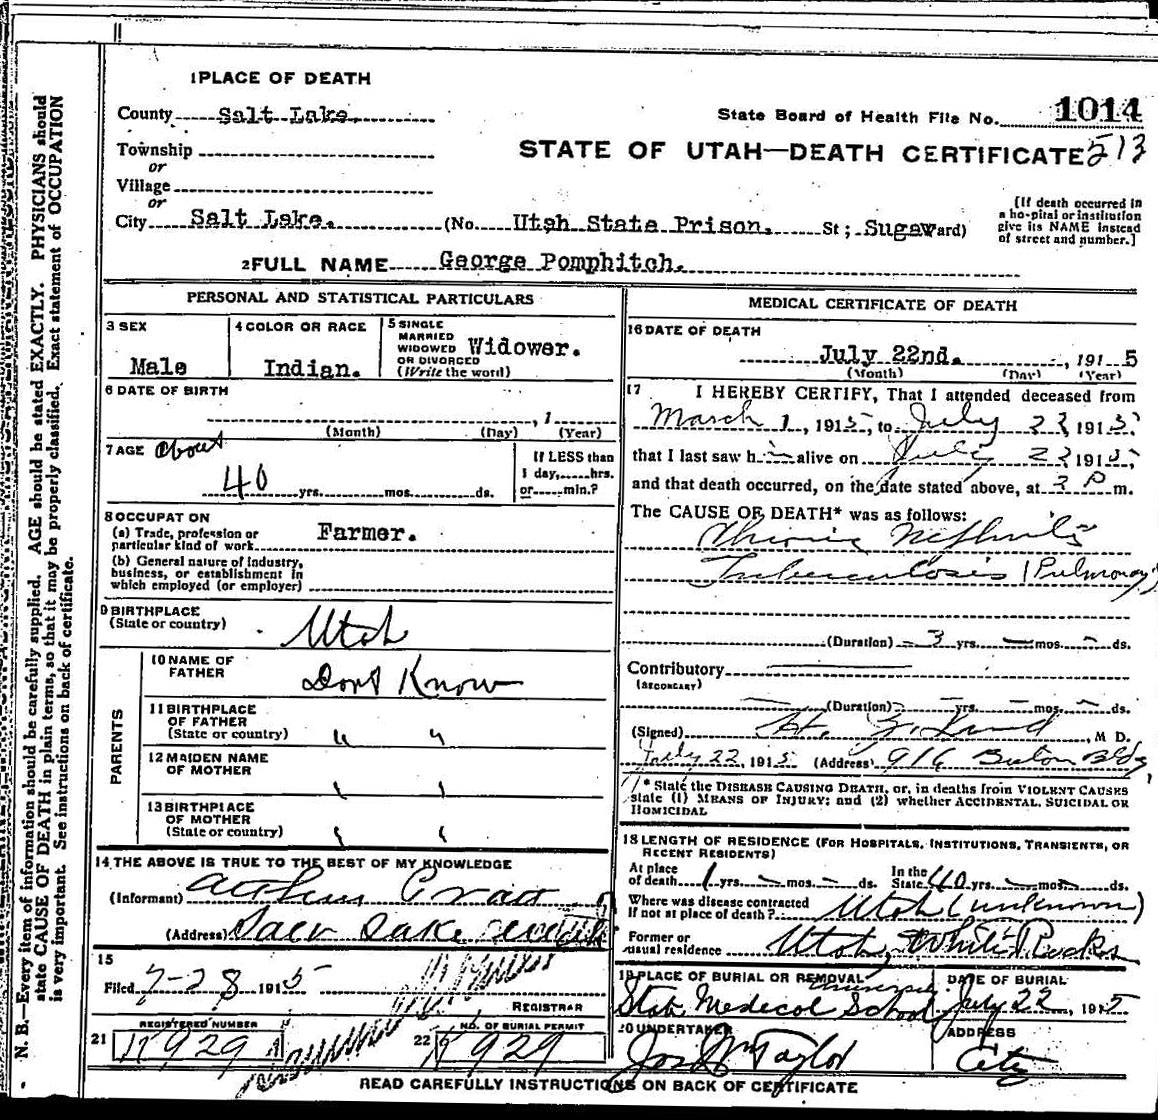 1 PLACE OF DEATH
County Salt Lake.
State Board of Health File No. 1014
Township
or
STATE OF UTAH—DEATH CERTIFICATE 513
Village
or
City Salt Lake. (No. Utah State Prison. St; Sugar Ward)
[If death occurred in
a hospital or institution
give its NAME instead
of street and number.]
2 FULL NAME George Pomphitch.
PERSONAL AND STATISTICAL PARTICULARS
3 SEX
Male
4 COLOR OR RACE
Indian.
5 SINGLE
MARRIED
WIDOWED
OR DIVORCED
(Write the word)
Widower.
6 DATE OF BIRTH
, 1
(Month) (Day) (Year)
7 AGE about
40 yrs. mos. ds.
If LESS than
1 day, hrs.
or min.?
8 OCCUPATION
(a) Trade, profession or
particular kind of work
Farmer.
(b) General nature of Industry,
business, or establishment in
which employed (or employer)
9 BIRTHPLACE
(State or country)
Utah
PARENTS
10 NAME OF
FATHER
Dont Know
11 BIRTHPLACE
OF FATHER
(State or country)
" "
12 MAIDEN NAME
OF MOTHER
13 BIRTHPLACE
OF MOTHER
(State or country)
14 THE ABOVE IS TRUE TO THE BEST OF MY KNOWLEDGE
(Informant) Arthur
(Address) Salt Lake
15
Filed 7-28 1915
REGISTRAR
REGISTERED NUMBER
21 929
NO. OF BURIAL PERMIT
22 929
MEDICAL CERTIFICATE OF DEATH
16 DATE OF DEATH
July 22nd. , 191 5
(Month) (Day) (Year)
17 I HEREBY CERTIFY, That I attended deceased from
March 1, 1915, to July 22, 1915,
that I last saw him alive on July 22 1915,
and that death occurred, on the date stated above, at 3 P m.
The CAUSE OF DEATH* was as follows:
Chronic Nephritis
Tuberculosis (Pulmonary)
(Duration) 3 yrs. — mos. — ds.
Contributory
(SECONDARY)
(Duration) — yrs. — mos. — ds.
(Signed) , M D.
July 22, 1915 (Address) 916 Bldg
* State the DISEASE CAUSING DEATH, or, in deaths from VIOLENT CAUSES
state (1) MEANS OF INJURY; and (2) whether ACCIDENTAL, SUICIDAL OR
HOMICIDAL
18 LENGTH OF RESIDENCE (FOR HOSPITALS, INSTITUTIONS, TRANSIENTS, OR
RECENT RESIDENTS)
At place
of death 1 yrs. — mos. — ds.
In the
State 40 yrs. — mos. — ds.
Where was disease contracted
If not at place of death? Utah (unknown)
Former or
usual residence Utah, White Rocks
19 PLACE OF BURIAL OR REMOVAL
State Medical School
DATE OF BURIAL
July 22, 1915
20 UNDERTAKER
Jos Wm Taylor
ADDRESS
City
READ CAREFULLY INSTRUCTIONS ON BACK OF CERTIFICATE
N. B.—Every item of information should be carefully supplied. AGE should be stated EXACTLY. PHYSICIANS should
state CAUSE OF DEATH in plain terms, so that it may be properly classified. Exact statement of OCCUPATION
is very important. See instructions on back of certificate.